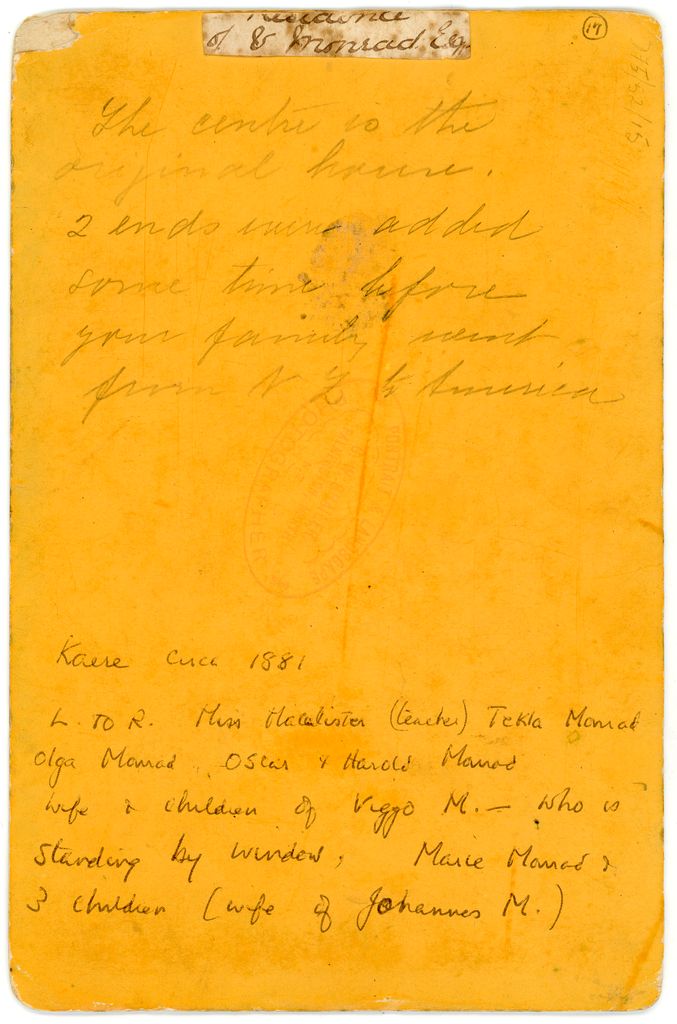 Residence
of V Monrad Esq.
17
The centre is the
original house.
2 ends were added
some time before
your family went
from N Z to America
Kaere circa 1881
L. TO R. Miss Macalister (teacher) Tekla Monrad
Olga Monrad, Oscar & Harold Monrad
wife & children of Viggo M. — who is
standing by window, Marie Monrad &
3 children (wife of Johannes M.)